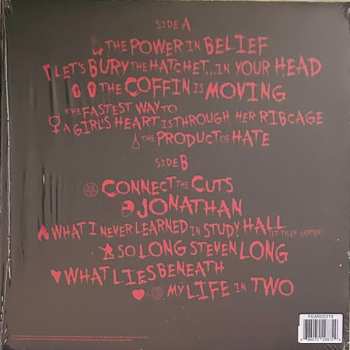 SIDE A
THE POWER IN BELIEF
LET'S BURY THE HATCHET...IN YOUR HEAD
THE COFFIN IS MOVING
THE FASTEST WAY TO
A GIRL'S HEART IS THROUGH HER RIBCAGE
THE PRODUCT OF HATE
SIDE B
CONNECT THE CUTS
JONATHAN
WHAT I NEVER LEARNED IN STUDY HALL
SO LONG STEVEN LONG
WHAT LIES BENEATH
MY LIFE IN TWO